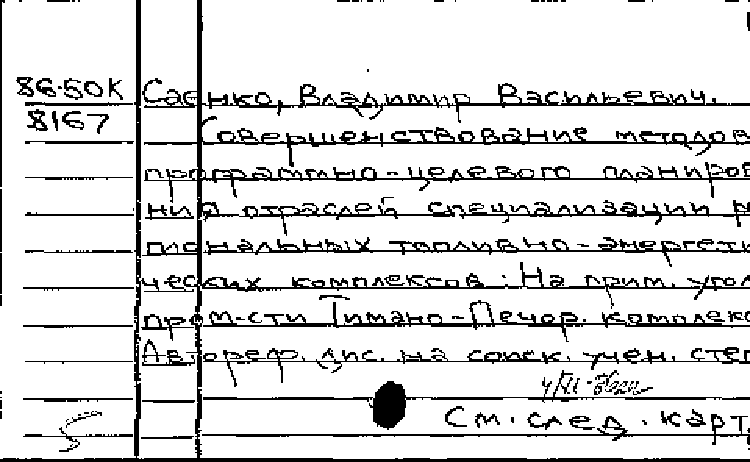 86-50К Саенко, Владимир Васильевич.
8167 Совершенствование методов
программно-целевого планирова
ния отраслей специализации ре
гиональных топливно-энергети
ческих комплексов: На прим. угол
пром-сти Тимано-Печор. комплекс
Автореф. дис. на соиск. учен. степ
См. след. карт
5